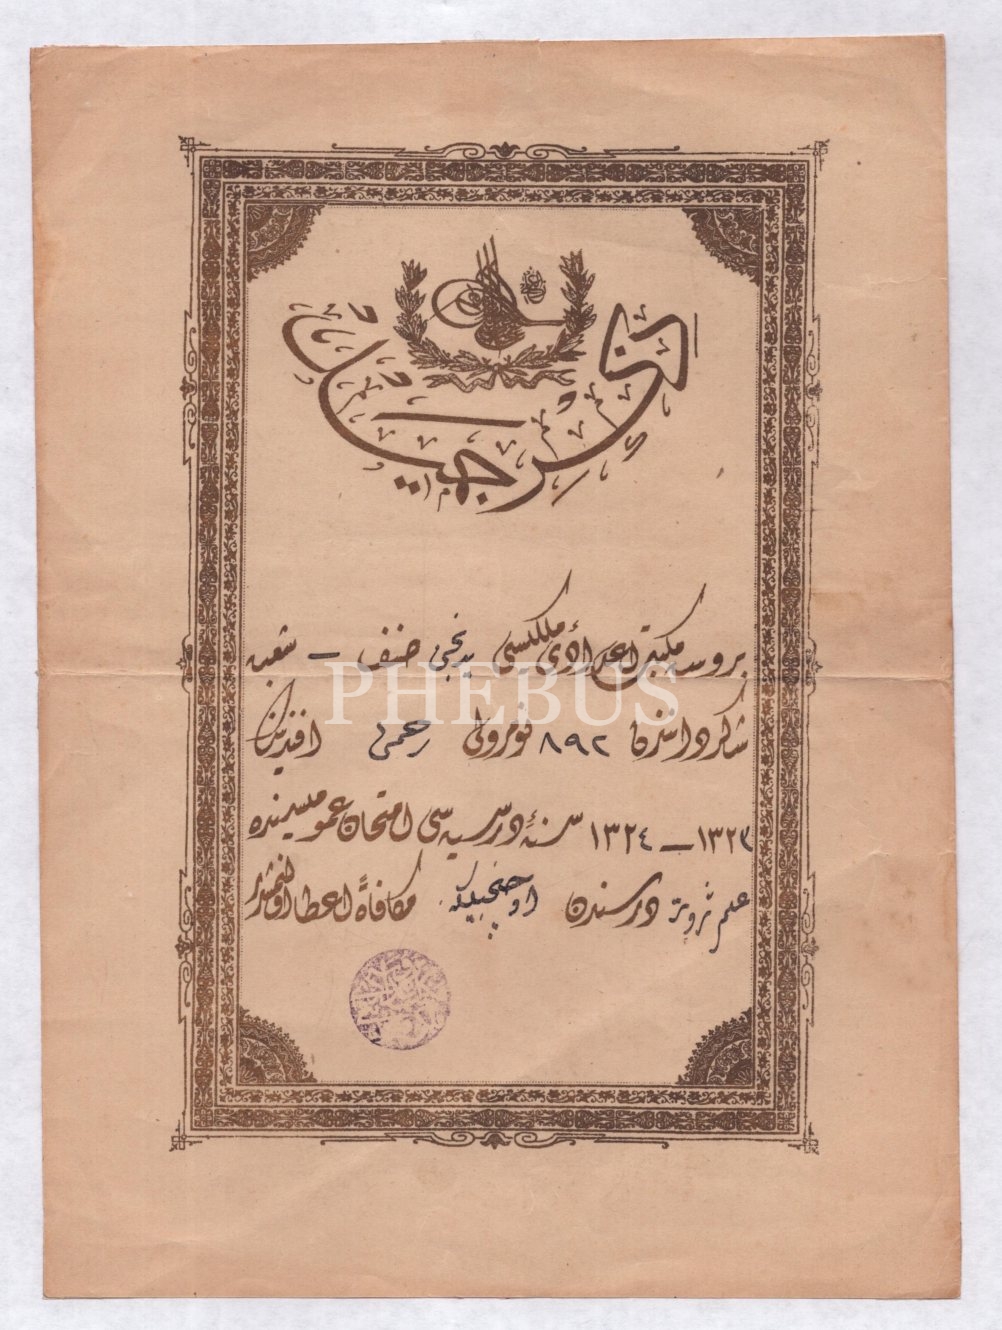 بروسه مكتب اعدادئ ملكيسى يدنجى صنف – شعبه
PHEBUS
شاكردانندن ٨٩٢ نومرولى رحمى افندينك
١٣٢٣ – ١٣٢٤ سنۀ درسيه سى امتحان عموميسنده
علم ثروت درسندن اوچنجيلكه مكافاةً اعطا اولنمشدر